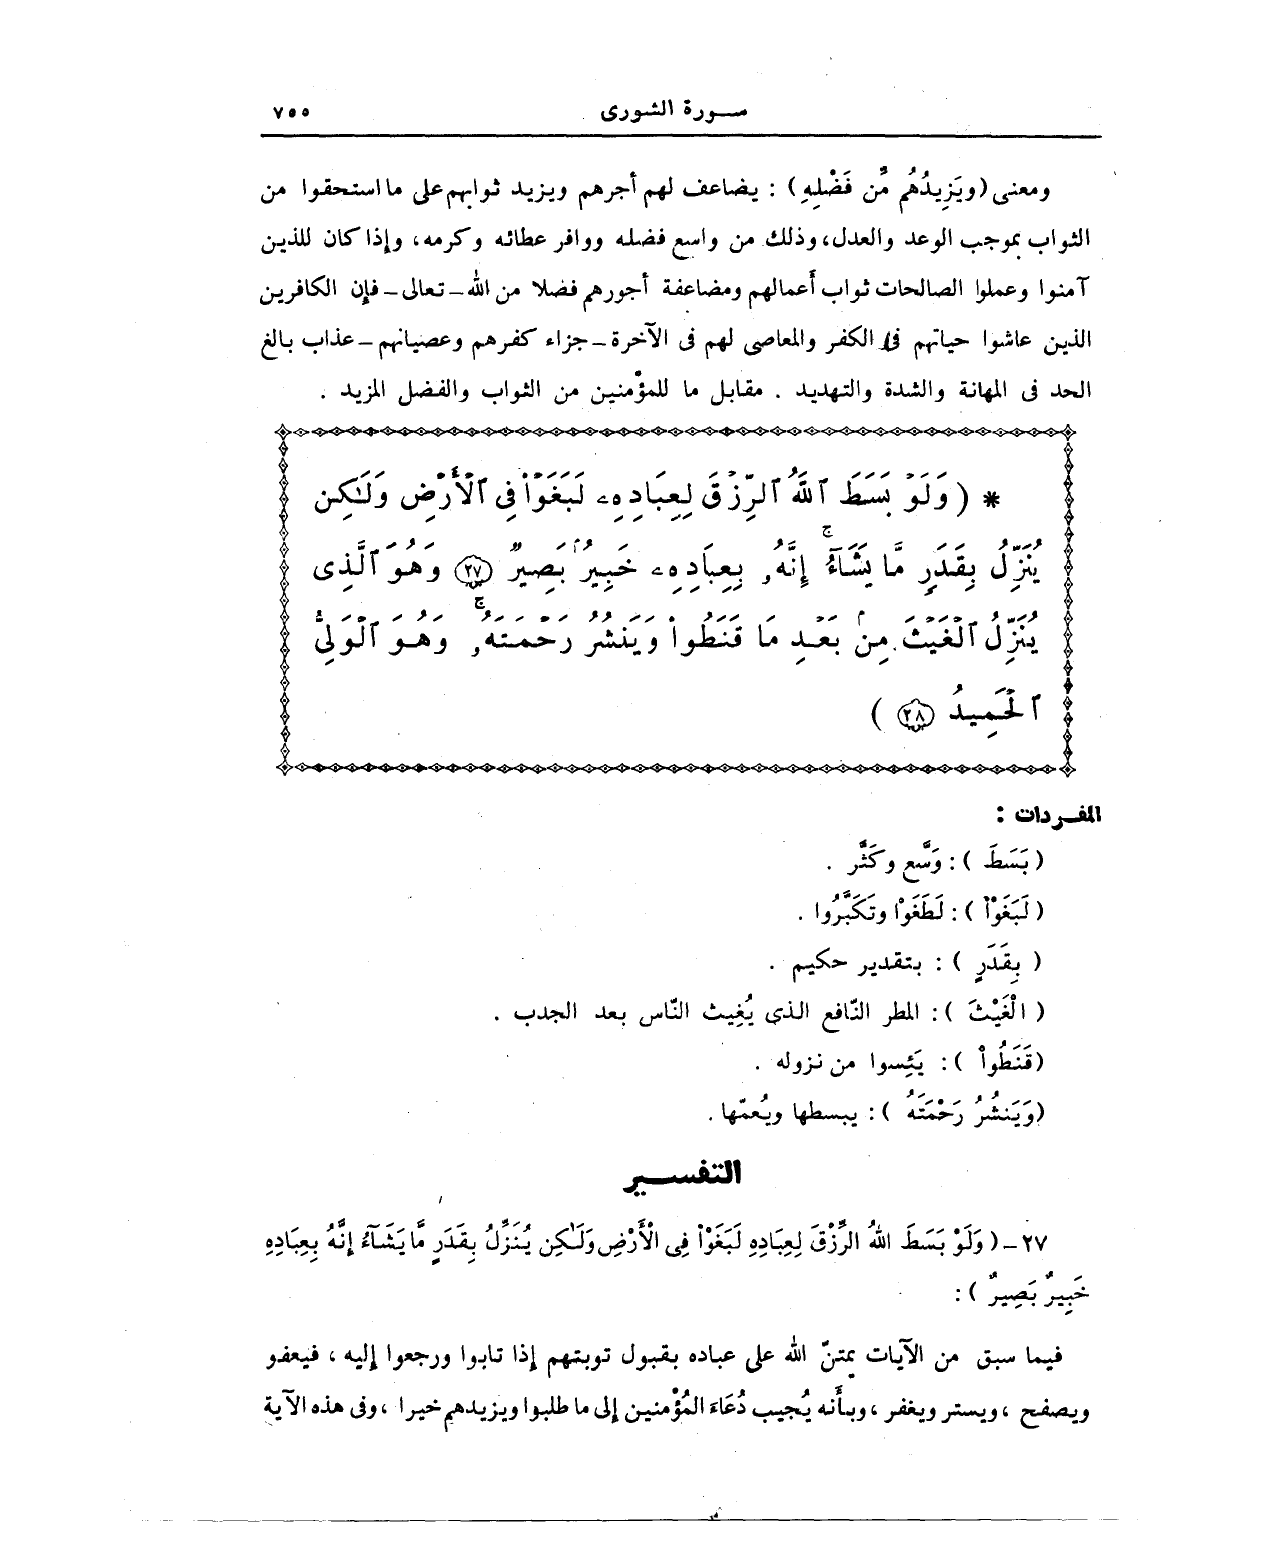 سورة الشورى ٧٥٥
ومعنى (ويَزِيدُهُم مِّن فَضْلِهِ) : يضاعف لهم أجرهم ويزيد ثوابهم على ما استحقوا من
الثواب بموجب الوعد والعدل، وذلك من واسع فضله ووافر عطائه وكرمه، وإذا كان للذين
آمنوا وعملوا الصالحات ثواب أعمالهم ومضاعفة أجورهم فضلا من الله - تعالى - فإن الكافرين
الذين عاشوا حياتهم فى الكفر والمعاصى لهم فى الآخرة - جزاء كفرهم وعصيانهم - عذاب بالغ
الحد فى المهانة والشدة والتهديد . مقابل ما للمؤمنين من الثواب والفضل المزيد .
* (وَلَوْ بَسَطَ ٱللَّهُ ٱلرِّزْقَ لِعِبَادِهِۦ لَبَغَوْا۟ فِى ٱلْأَرْضِ وَلَـٰكِن
يُنَزِّلُ بِقَدَرٍ مَّا يَشَآءُ ۚ إِنَّهُۥ بِعِبَادِهِۦ خَبِيرٌۢ بَصِيرٌ ٢٧ وَهُوَ ٱلَّذِى
يُنَزِّلُ ٱلْغَيْثَ مِنۢ بَعْدِ مَا قَنَطُوا۟ وَيَنشُرُ رَحْمَتَهُۥ ۚ وَهُوَ ٱلْوَلِىُّ
ٱلْحَمِيدُ ٢٨ )
المفردات :
( بَسَطَ ) : وَسَّع وكَثَّر .
( لَبَغَوْاْ ) : لَطَغَوْا وتَكَبَّرُوا .
( بِقَدَرٍ ) : بتقدير حكيم .
( الْغَيْثَ ) : المطر النَّافع الذى يُغِيث النَّاس بعد الجدب .
(قَنَطُواْ ) : يَئِسوا من نزوله .
(وَيَنشُرُ رَحْمَتَهُ ) : يبسطها ويُعمّها .
التفسير
٢٧ - ( وَلَوْ بَسَطَ اللهُ الرِّزْقَ لِعِبَادِهِ لَبَغَوْاْ فِى الْأَرْضِ وَلَـٰكِن يُنَزِّلُ بِقَدَرٍ مَّا يَشَآءُ إِنَّهُ بِعِبَادِهِ
خَبِيرٌ بَصِيرٌ ) :
فيما سبق من الآيات يمتنّ الله على عباده بقبول توبتهم إذا تابوا ورجعوا إليه ، فيعفو
ويصفح ، ويستر ويغفر ، وبأَنه يُجيب دُعَاءَ المُؤْمنين إلى ما طلبوا ويزيدهم خيرا ، وفى هذه الآية